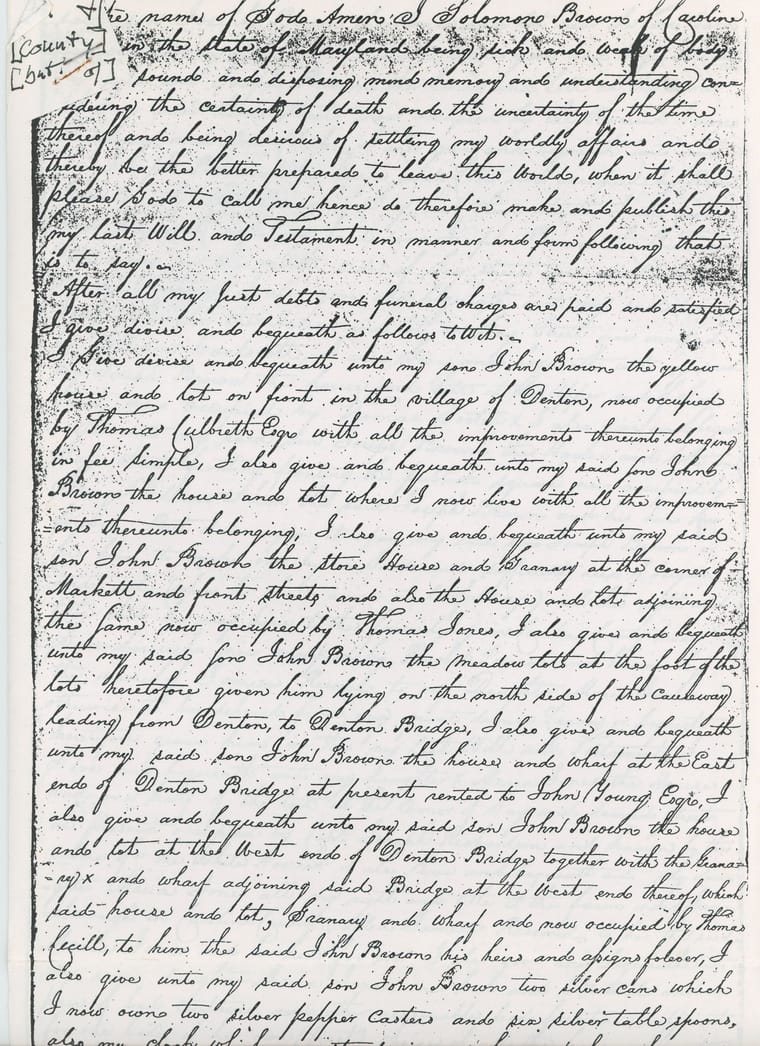 the name of God Amen I Solomon Brown of Caroline
[county] in the state of Maryland being sick and weak of body
[but of] sound and disposing mind memory and understanding con=
sidering the certainty of death and the uncertainty of the time
thereof and being desirous of settling my worldly affairs and
thereby be the better prepared to leave this World, when it shall
please God to call me hence do therefore make and publish this
my last Will and Testament in manner and form following that
is to say.
After all my Just debts and funeral charges are paid and satisfied
I give divise and bequeath as follows to Wit.
I Give devise and bequeath unto my son John Brown the yellow
house and lot on front in the village of Denton, now occupied
by Thomas Culbreth Esqr with all the improvements thereunto belonging
in fee simple, I also give and bequeath unto my said son John
Brown the house and lot where I now live with all the improvem=
=ents thereunto belonging, I also give and bequeath unto my said
son John Brown the store House and Granary at the corner of
Markett and front streets, and also the House and lot adjoining
the same now occupied by Thomas Jones, I also give and bequeath
unto my said son John Brown the meadow lots at the foot of the
lots heretofore given him lying on the north side of the causeway
leading from Denton, to Denton Bridge, I also give and bequeath
unto my said son John Brown the house and wharf at the East
end of Denton Bridge at present rented to John Young Esqr, I
also give and bequeath unto my said son John Brown the house
and lot at the West end of Denton Bridge together with the Grana=
=ry x and wharf adjoining said Bridge at the West end thereof, which
said house and lot, Granary and wharf and now occupied by Thomas
Cecill, to him the said John Brown his heirs and assigns forever, I
also give unto my said son John Brown two silver cans which
I now own two silver pepper casters and six silver table spoons,
also my clock